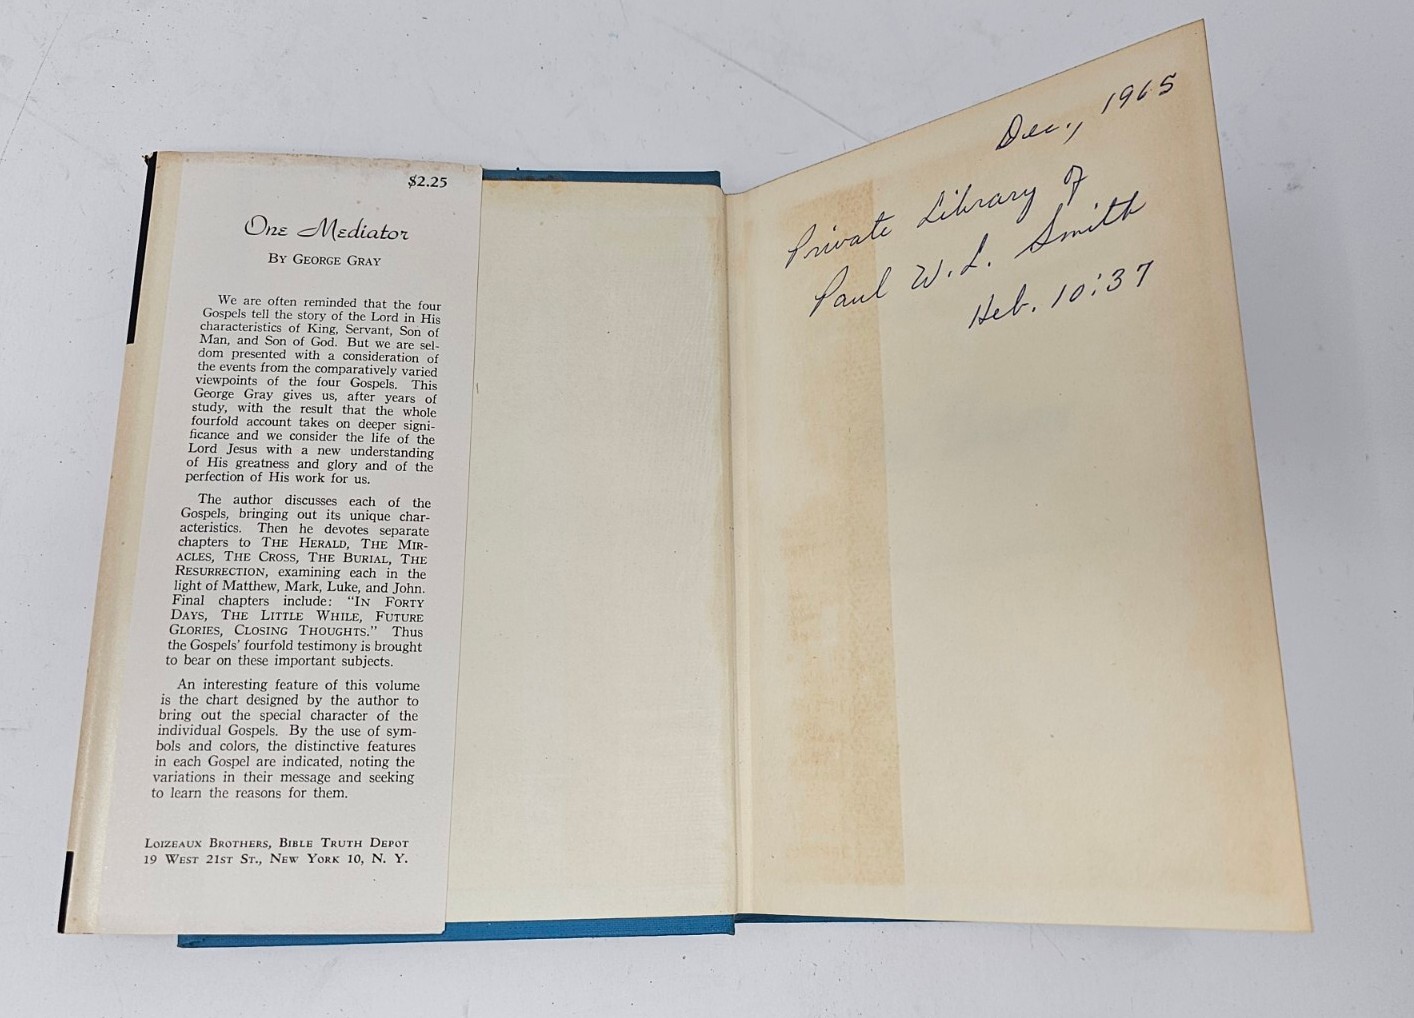 $2.25
One Mediator
BY GEORGE GRAY
We are often reminded that the four
Gospels tell the story of the Lord in His
characteristics of King, Servant, Son of
Man, and Son of God. But we are sel-
dom presented with a consideration of
the events from the comparatively varied
viewpoints of the four Gospels. This
George Gray gives us, after years of
study, with the result that the whole
fourfold account takes on deeper signi-
ficance and we consider the life of the
Lord Jesus with a new understanding
of His greatness and glory and of the
perfection of His work for us.
The author discusses each of the
Gospels, bringing out its unique char-
acteristics. Then he devotes separate
chapters to THE HERALD, THE MIR-
ACLES, THE CROSS, THE BURIAL, THE
RESURRECTION, examining each in the
light of Matthew, Mark, Luke, and John.
Final chapters include: "IN FORTY
DAYS, THE LITTLE WHILE, FUTURE
GLORIES, CLOSING THOUGHTS." Thus
the Gospels' fourfold testimony is brought
to bear on these important subjects.
An interesting feature of this volume
is the chart designed by the author to
bring out the special character of the
individual Gospels. By the use of sym-
bols and colors, the distinctive features
in each Gospel are indicated, noting the
variations in their message and seeking
to learn the reasons for them.
LOIZEAUX BROTHERS, BIBLE TRUTH DEPOT
19 WEST 21ST ST., NEW YORK 10, N. Y.
Dec., 1965
Private Library of
Paul W. L. Smith
Heb. 10:37